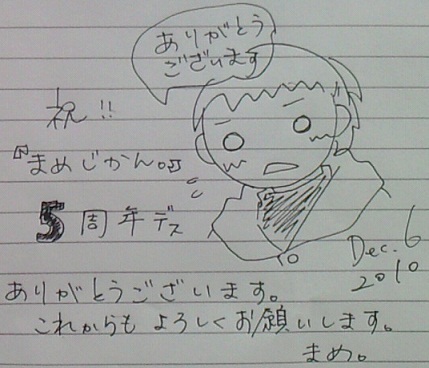 ありがとう
ございます
祝!!
『まめじかん。』
5周年デス
Dec. 6
2010
ありがとうございます。
これからもよろしくお願いします。
まめ。